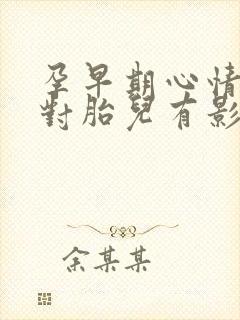 孕早期心情
對胎兒有影
余某某